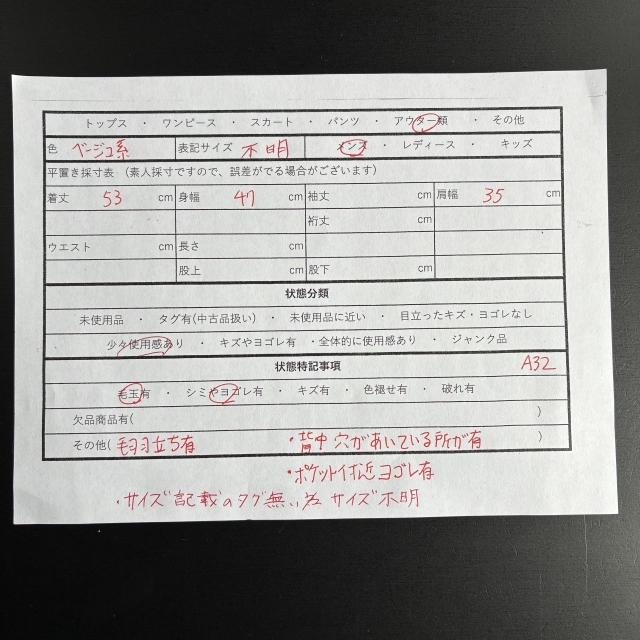 トップス ・ ワンピース ・ スカート ・ パンツ ・ アウター類 ・ その他
色 ベージュ系 表記サイズ 不明 メンズ ・ レディース ・ キッズ
平置き採寸表 (素人採寸ですので、誤差がでる場合がございます)
着丈 53 cm 身幅 47 cm 袖丈 cm 肩幅 35 cm
裄丈 cm
ウエスト cm 長さ cm
股上 cm 股下 cm
状態分類
未使用品 ・ タグ有(中古品扱い) ・ 未使用品に近い ・ 目立ったキズ・ヨゴレなし
少々使用感あり ・ キズやヨゴレ有 ・全体的に使用感あり ・ ジャンク品
状態特記事項 A32
毛玉有 ・ シミやヨゴレ有 ・ キズ有 ・ 色褪せ有 ・ 破れ有
欠品商品有( )
その他( 毛羽立ち有 ・背中 穴があいている所が有 )
・ポケット付近ヨゴレ有
・サイズ記載のタグ無い為 サイズ不明